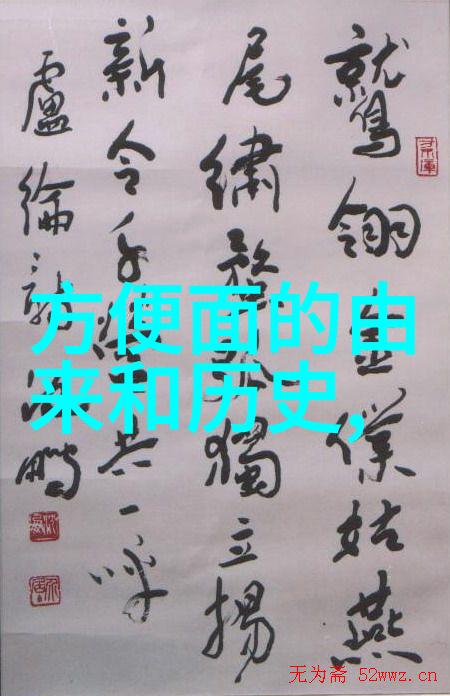 鷲翎金僕姑燕
尾繡蝥弧獨立揚
新令千營共一呼
盧綸詩沈鵬
方便面的由
来和历史,
无为斋 52wwz.cn